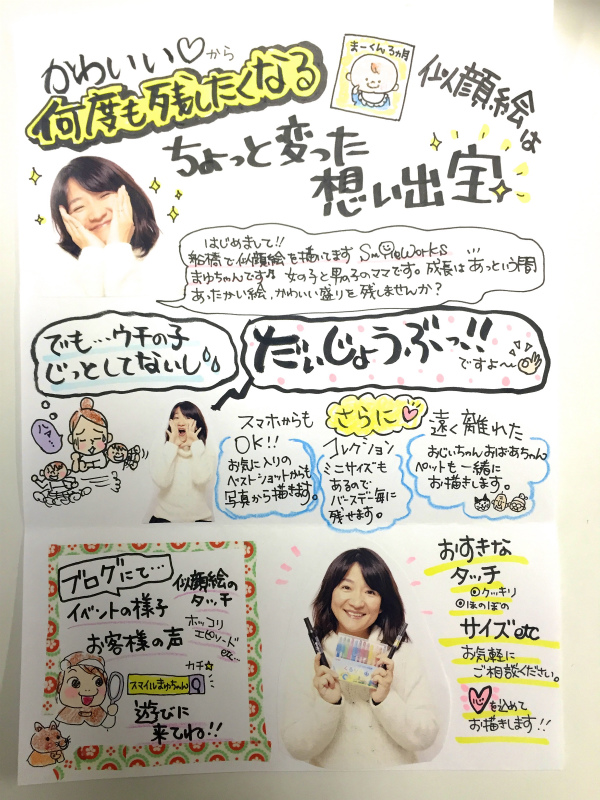 かわいい♡から
何度も残したくなる
まーくん3ヵ月
似顔絵は
ちょっと変った
想い出宝
はじめまして!!
船橋で似顔絵を描いてます SmileWorks
まゆちゃんです♪ 女の子と男の子のママです。成長はあっという間…
あったかい絵、かわいい盛りを残しませんか?
でも…ウチの子
じっとしてないし
だいじょうぶっ!!
ですよ〜
ハァ…
スマホからも
OK!!
お気に入りの
ベストショットからも
写真から描きます。
さらに♡
コレクション
ミニサイズも
あるので
バースデー毎に
残せます。
遠く離れた
おじいちゃんおばあちゃん
ペットも一緒に
お描きします。
ブログにて…
イベントの様子
お客様の声
似顔絵の
タッチ
ホッコリ
エピソード
etc…
カチ☆
スマイルまゆちゃん
遊びに
来てね!!
おすきな
タッチ
◎クッキリ
◎ほのぼの
サイズetc
お気軽に
ご相談ください。
を込めて
お描きします!!